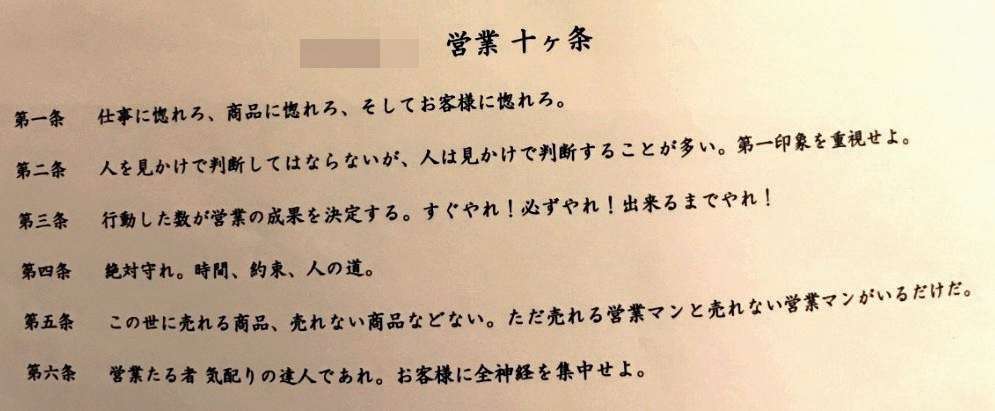 営業 十ヶ条
第一条 仕事に惚れろ、商品に惚れろ、そしてお客様に惚れろ。
第二条 人を見かけで判断してはならないが、人は見かけで判断することが多い。第一印象を重視せよ。
第三条 行動した数が営業の成果を決定する。すぐやれ！必ずやれ！出来るまでやれ！
第四条 絶対守れ。時間、約束、人の道。
第五条 この世に売れる商品、売れない商品などない。ただ売れる営業マンと売れない営業マンがいるだけだ。
第六条 営業たる者 気配りの達人であれ。お客様に全神経を集中せよ。